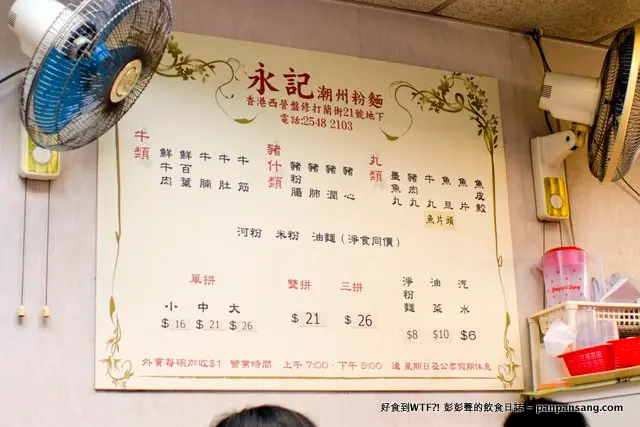 永記潮州粉麵
香港西營盤修打蘭街21號地下
電話:2548 2103
牛類
鮮牛肉
鮮百葉
牛腩
牛肚
牛筋
豬什類
豬粉腸
豬肺
豬潤
豬心
丸類
墨魚丸
豬肉丸
牛丸
魚旦
魚片
魚皮餃
魚片頭
河粉 米粉 油麵(淨食同價)
單拼
小 中 大
$16 $21 $26
雙拼
$21
三拼
$26
淨粉麵
$8
油菜
$10
汽水
$6
外賣每碗加收$1 營業時間 上午7:00 - 下午 逢星期日及公眾假期休息
好食到WTF?! 彭彭聲的飲食日誌 - panpansang.com